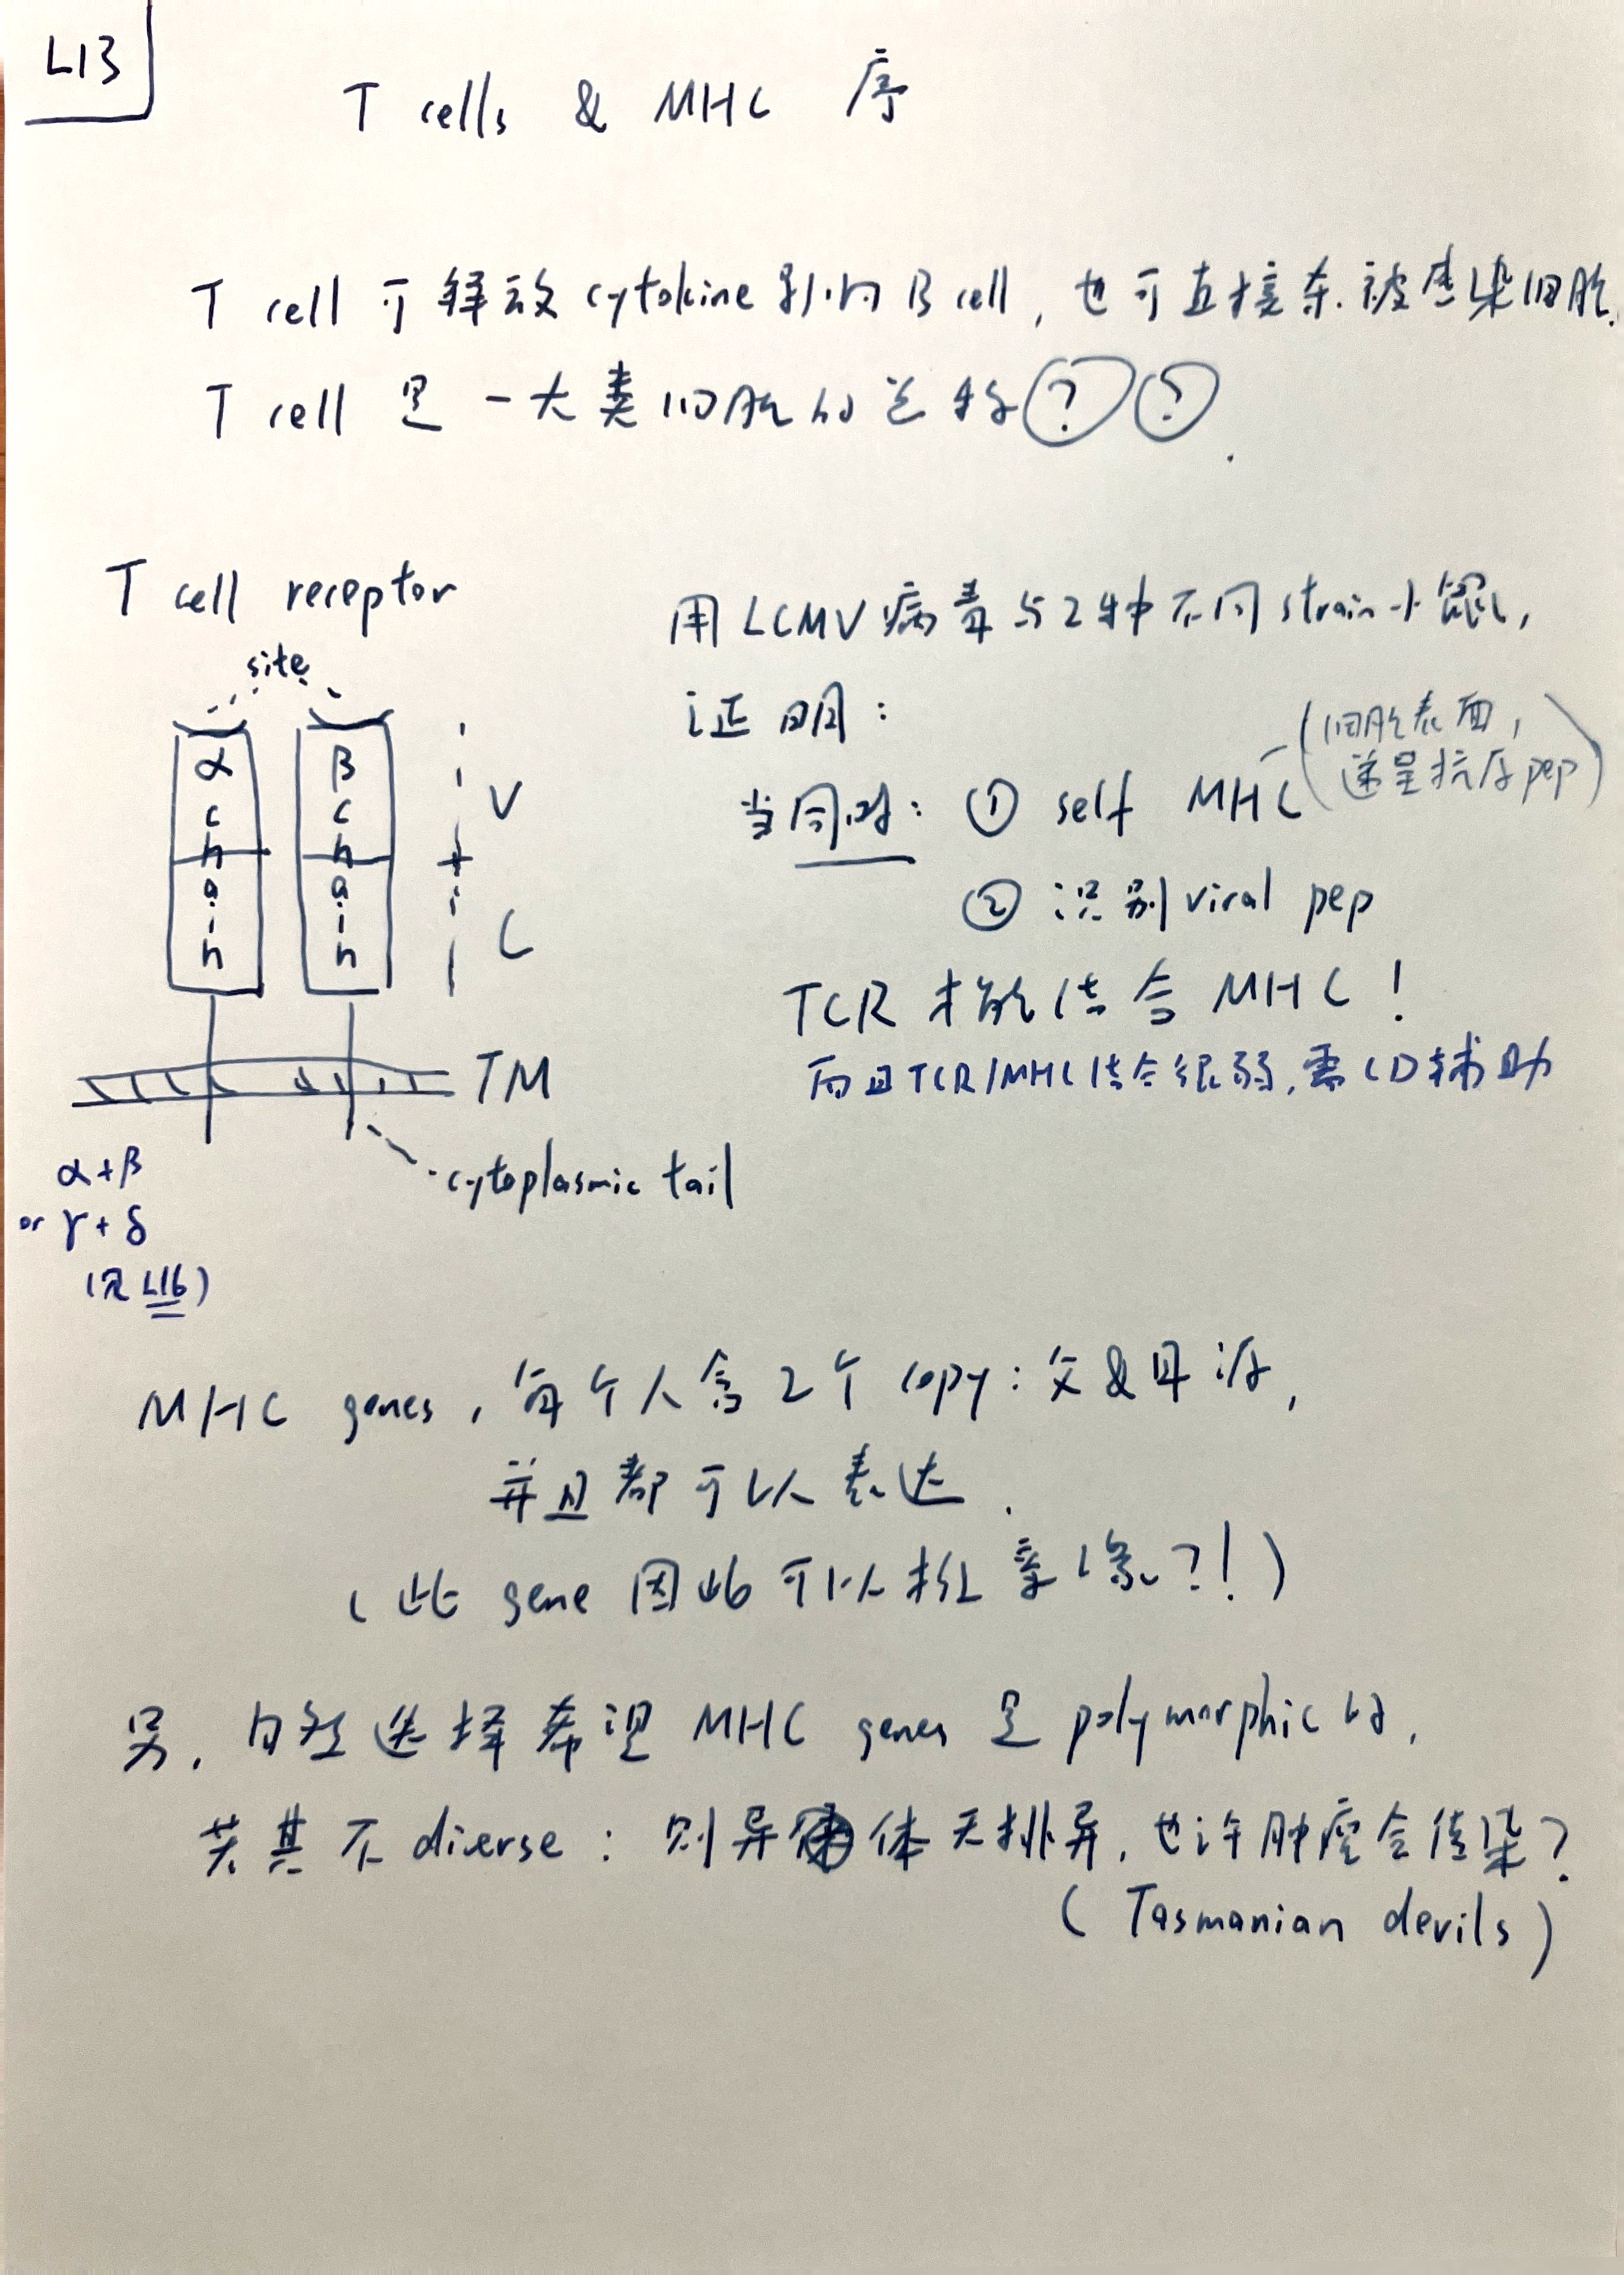 L13
T cells & MHC 序
T cell 可释放 cytokine 影响 B cell, 也可直接杀被感染细胞.
T cell 是一大类细胞的总称 ? ?.
T cell receptor
site
α chain
β chain
V
C
TM
cytoplasmic tail
α+β
or γ+δ
(见 L16)
用 LCMV 病毒与2种不同 strain 小鼠,
证明:
当同时: ① self MHC (细胞表面,
递呈抗原 pep)
② 识别 viral pep
TCR 才能结合 MHC !
而且 TCR/MHC 结合很弱, 需 CD 辅助
MHC genes, 每个人含2个 copy: 父&母源,
并且都可以表达.
(此 gene 因此可以验亲缘?!)
另, 自然选择希望 MHC genes 是 polymorphic 的,
若其不 diverse: 则异体无排异, 也许肿瘤会传染?
(Tasmanian devils)